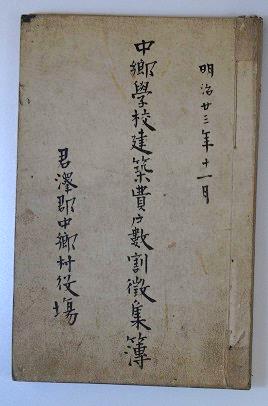 明治廿三年十一月
中郷學校建築費戸數割徴集簿
君澤郡中郷村役場